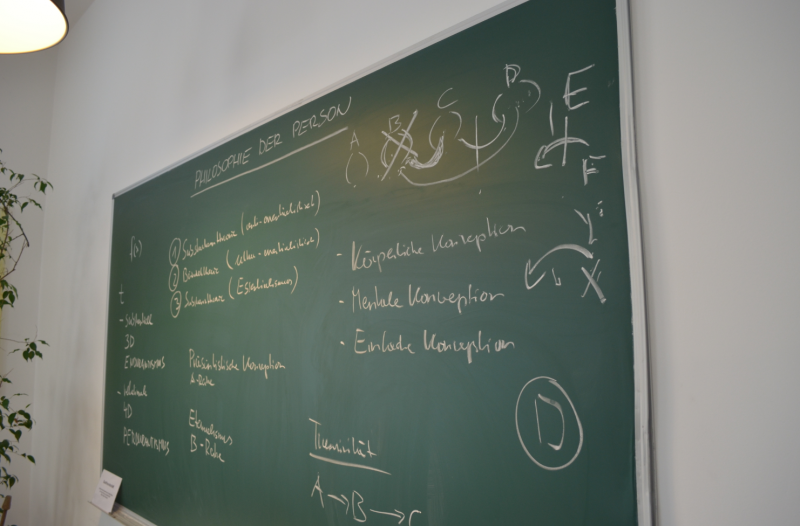 PHILOSOPHIE DER PERSON
A B C D E
F
Y
X
f(x)
① Substratumtheorie (anti-essentialistisch)
② Bündeltheorie
③ Substanztheorie (Essentialismus)
- Körperliche Konzeption
- Mentale Konzeption
- Einfache Konzeption
t
3D
ENDURANTISMUS
4D
PERDURANTISMUS
Präsentistische Konzeption
A-Reihe
Eternalismus
B-Reihe
Transitivität
A → B → C
D